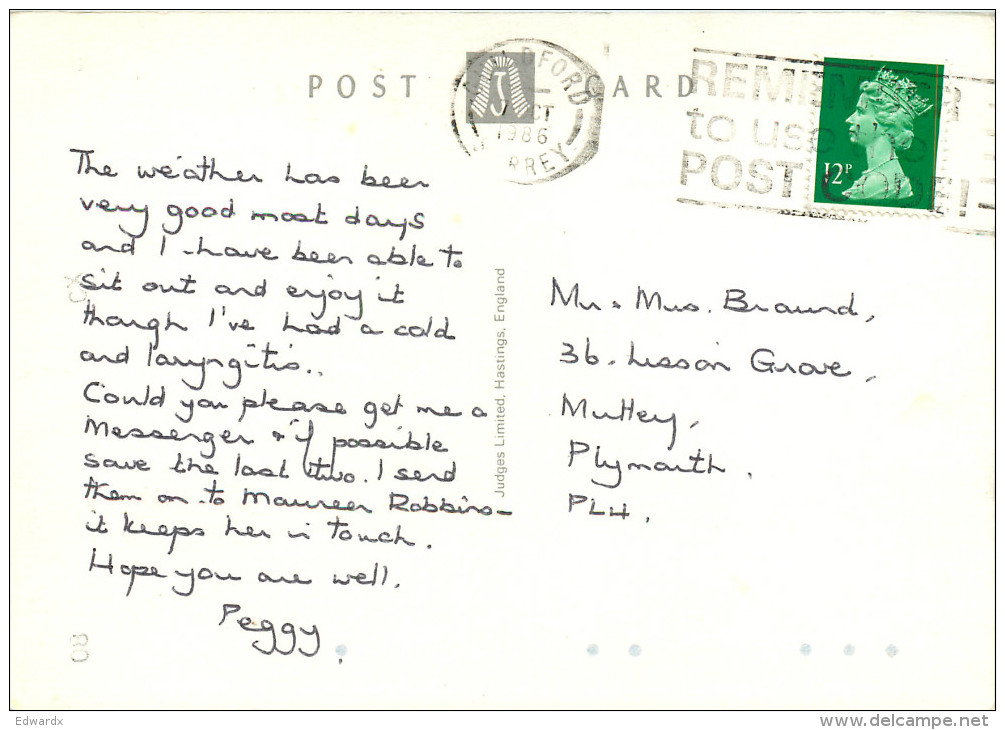 POST CARD
1986
REMEMBER
to use
POST CODE!
12P
The weather has been
very good most days
and I have been able to
sit out and enjoy it
though I've had a cold
and laryngitis..
Could you please get me a
Messenger & if possible
save the last two. I send
them on to Maureen Robbins -
it keeps her in touch.
Hope you are well.
Peggy.
Judges Limited, Hastings, England
Mr & Mrs. Braund,
36. Lisson Grove,
Mutley,
Plymouth.
PL4.
80
Edwardx
www.delcampe.net